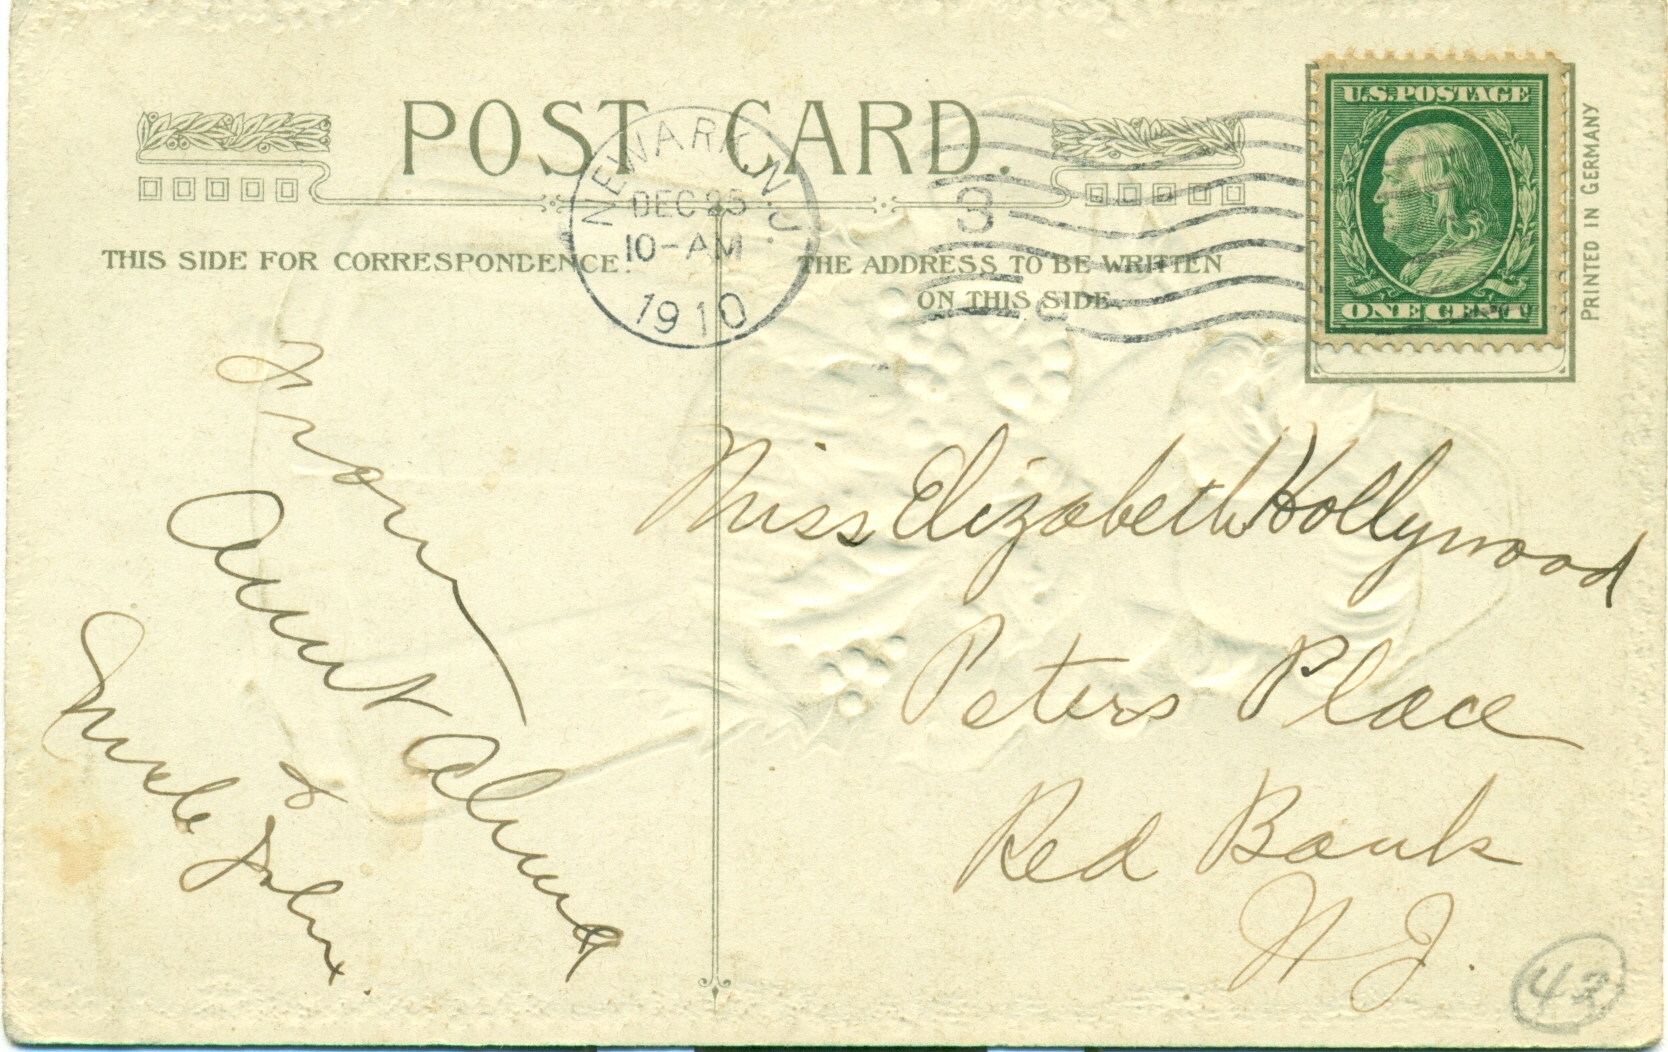 POST CARD.
NEWARK, N.J.
DEC 25
10-AM
1910
3
U.S. POSTAGE
ONE CENT
PRINTED IN GERMANY
THIS SIDE FOR CORRESPONDENCE.
THE ADDRESS TO BE WRITTEN
ON THIS SIDE.
From
Aunt Alma
&
Uncle John.
Miss Elizabeth Hollywood
Peters Place
Red Bank
N J.
43